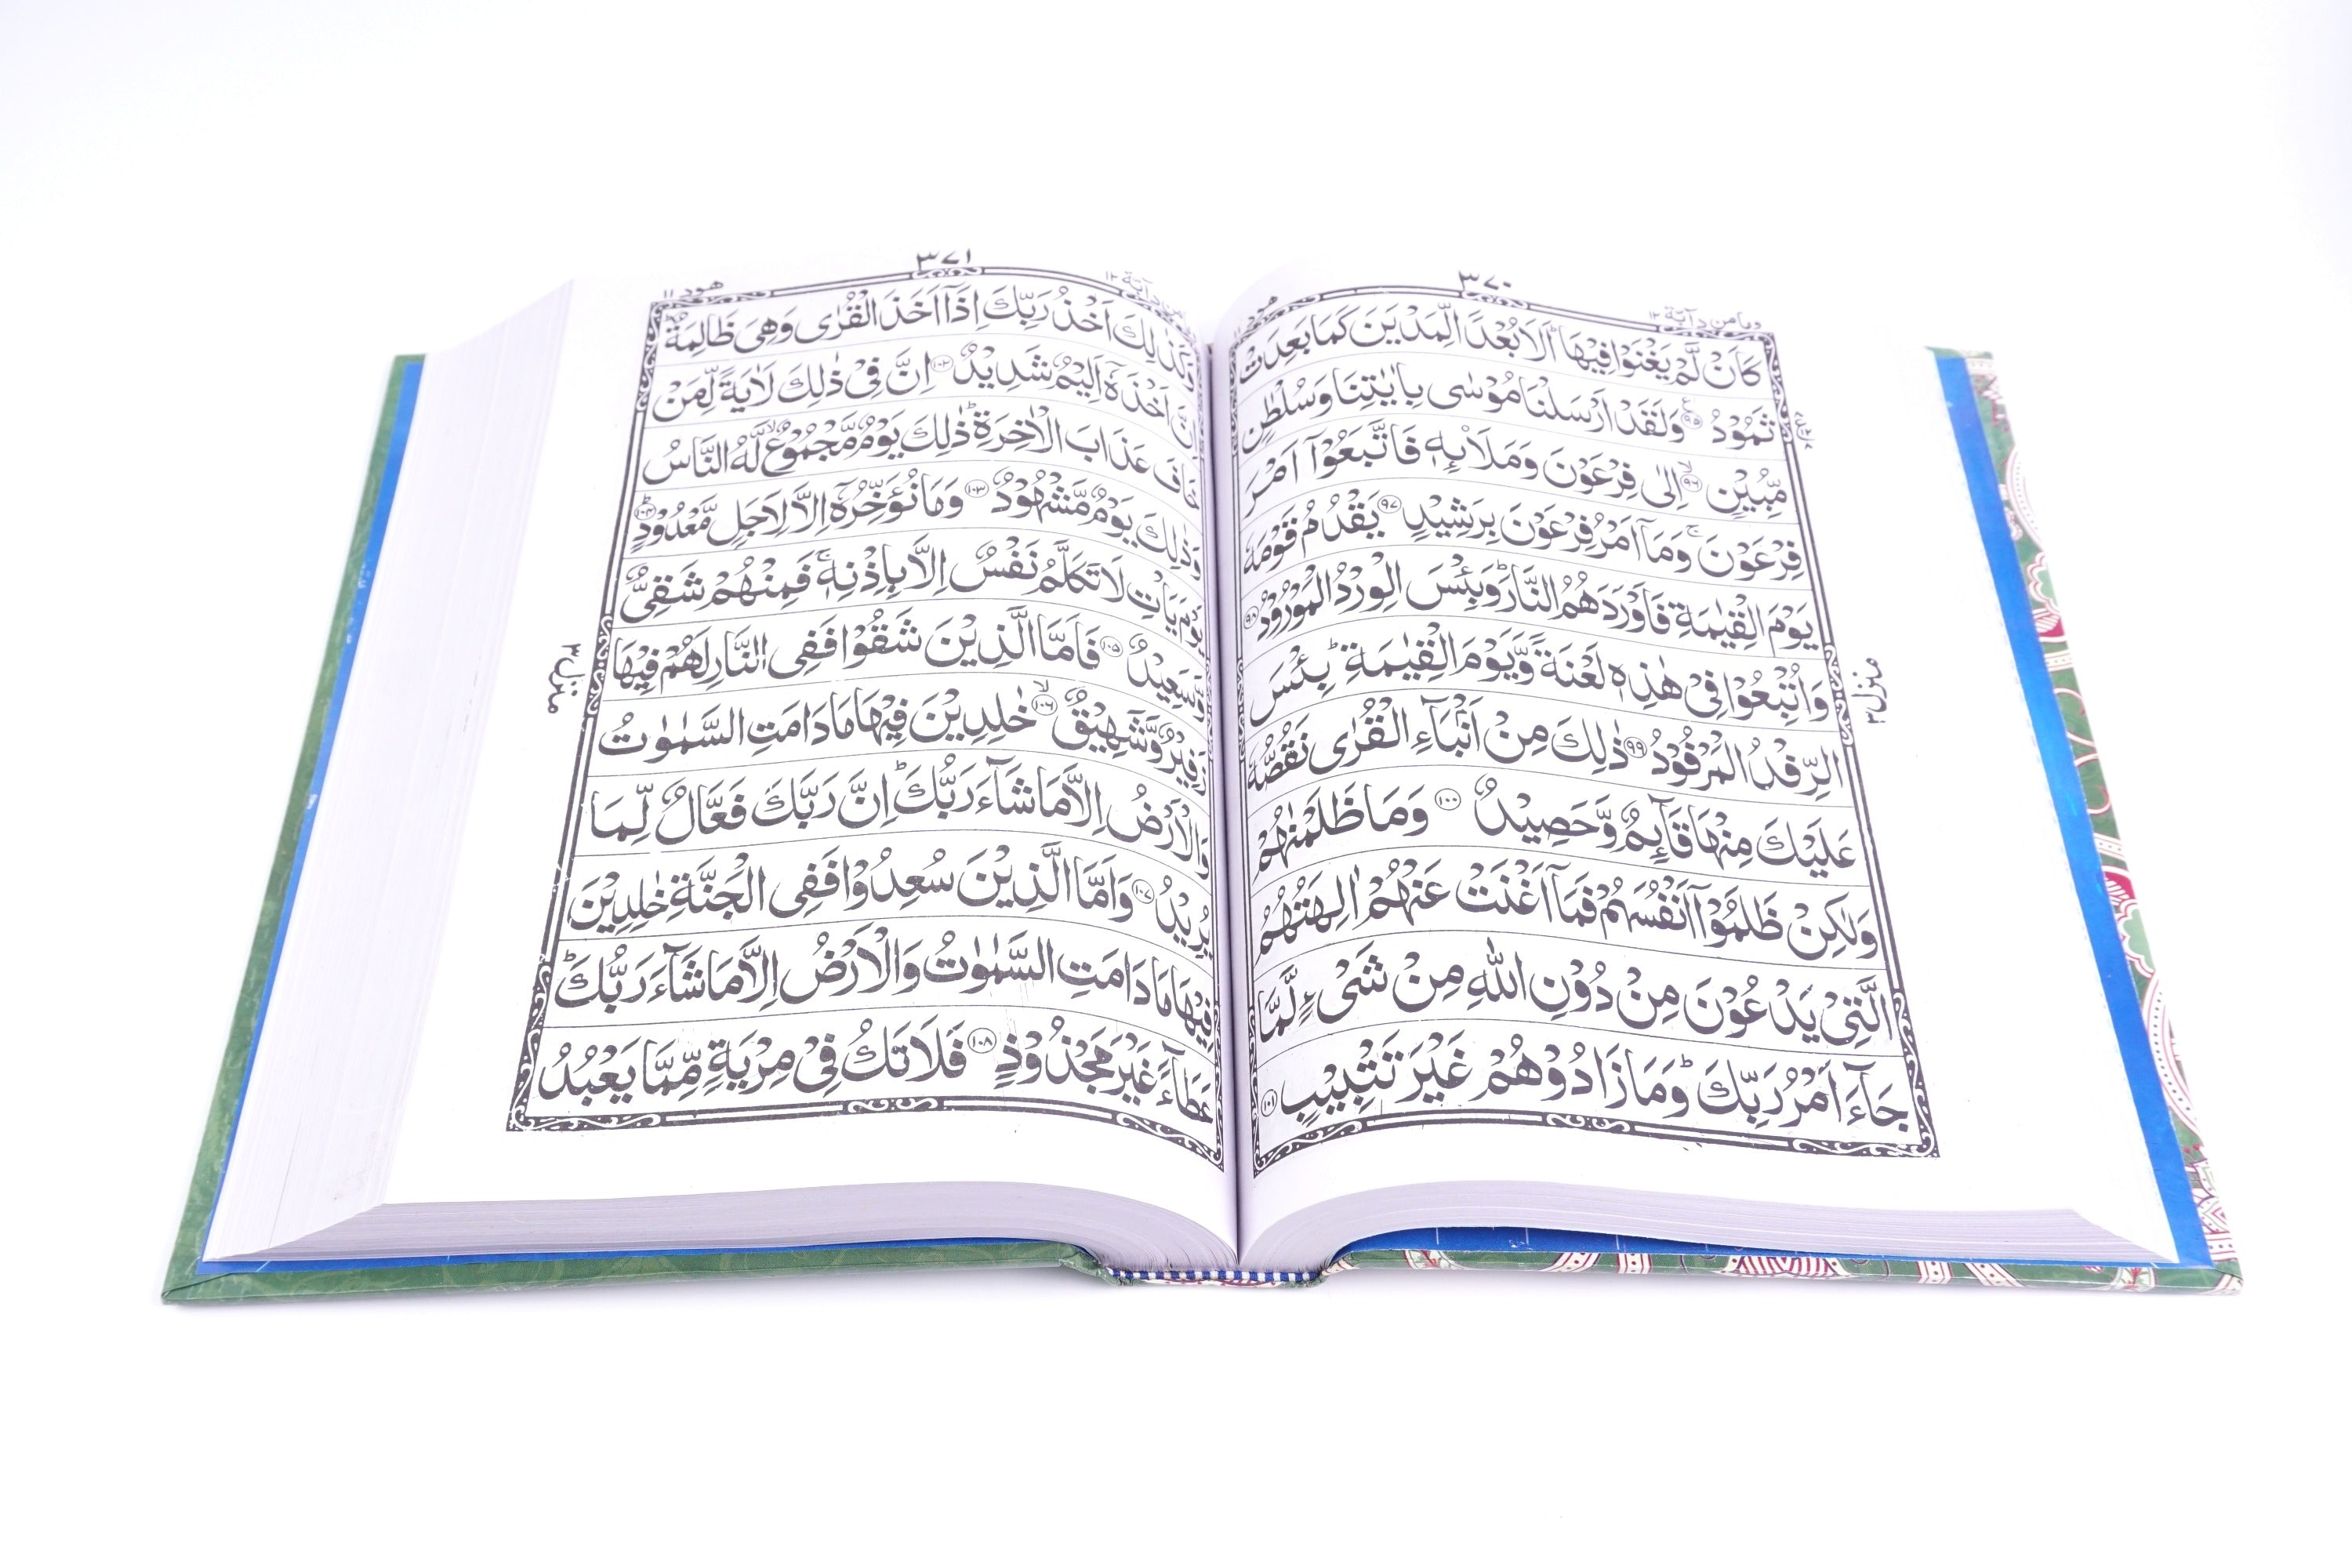 وما من دآبّة ١٢
٣٧٠
هود ١١
كَاَنْ لَّمْ يَغْنَوْا فِيْهَا ؕ اَلَا بُعْدًا لِّمَدْيَنَ كَمَا بَعِدَتْ
ثَمُوْدُ ﴿۹۵﴾ وَلَقَدْ اَرْسَلْنَا مُوْسٰى بِاٰيٰتِنَا وَسُلْطٰنٍ
مُّبِيْنٍ ﴿۹۶﴾ اِلٰى فِرْعَوْنَ وَمَلَا۟ئِهٖ فَاتَّبَعُوْۤا اَمْرَ
فِرْعَوْنَ ۚ وَمَاۤ اَمْرُ فِرْعَوْنَ بِرَشِيْدٍ ﴿۹۷﴾ يَقْدُمُ قَوْمَهٗ
يَوْمَ الْقِيٰمَةِ فَاَوْرَدَهُمُ النَّارَ ؕ وَبِئْسَ الْوِرْدُ الْمَوْرُوْدُ ﴿۹۸﴾
وَاُتْبِعُوْا فِيْ هٰذِهٖ لَعْنَةً وَّيَوْمَ الْقِيٰمَةِ ؕ بِئْسَ
الرِّفْدُ الْمَرْفُوْدُ ﴿۹۹﴾ ذٰلِكَ مِنْ اَنْۢبَآءِ الْقُرٰى نَقُصُّهٗ
عَلَيْكَ مِنْهَا قَآئِمٌ وَّحَصِيْدٌ ﴿۱۰۰﴾ وَمَا ظَلَمْنٰهُمْ
وَلٰكِنْ ظَلَمُوْۤا اَنْفُسَهُمْ فَمَاۤ اَغْنَتْ عَنْهُمْ اٰلِهَتُهُمُ
الَّتِيْ يَدْعُوْنَ مِنْ دُوْنِ اللّٰهِ مِنْ شَيْءٍ لَّمَّا
جَآءَ اَمْرُ رَبِّكَ ؕ وَمَا زَادُوْهُمْ غَيْرَ تَتْبِيْبٍ ﴿۱۰۱﴾
منزل ٣
٣٧١
هود ١١
وَكَذٰلِكَ اَخْذُ رَبِّكَ اِذَاۤ اَخَذَ الْقُرٰى وَهِيَ ظَالِمَةٌ ؕ
اِنَّ اَخْذَهٗۤ اَلِيْمٌ شَدِيْدٌ ﴿۱۰۲﴾ اِنَّ فِيْ ذٰلِكَ لَاٰيَةً لِّمَنْ
خَافَ عَذَابَ الْاٰخِرَةِ ؕ ذٰلِكَ يَوْمٌ مَّجْمُوْعٌ ۙ لَّهُ النَّاسُ
وَذٰلِكَ يَوْمٌ مَّشْهُوْدٌ ﴿۱۰۳﴾ وَمَا نُؤَخِّرُهٗۤ اِلَّا لِاَجَلٍ مَّعْدُوْدٍ ؕ ﴿۱۰۴﴾
يَوْمَ يَاْتِ لَا تَكَلَّمُ نَفْسٌ اِلَّا بِاِذْنِهٖ ۚ فَمِنْهُمْ شَقِيٌّ
وَّسَعِيْدٌ ﴿۱۰۵﴾ فَاَمَّا الَّذِيْنَ شَقُوْا فَفِي النَّارِ لَهُمْ فِيْهَا
زَفِيْرٌ وَّشَهِيْقٌ ۙ ﴿۱۰۶﴾ خٰلِدِيْنَ فِيْهَا مَا دَامَتِ السَّمٰوٰتُ
وَالْاَرْضُ اِلَّا مَا شَآءَ رَبُّكَ ؕ اِنَّ رَبَّكَ فَعَّالٌ لِّمَا
يُرِيْدُ ﴿۱۰۷﴾ وَاَمَّا الَّذِيْنَ سُعِدُوْا فَفِي الْجَنَّةِ خٰلِدِيْنَ
فِيْهَا مَا دَامَتِ السَّمٰوٰتُ وَالْاَرْضُ اِلَّا مَا شَآءَ رَبُّكَ ؕ
عَطَآءً غَيْرَ مَجْذُوْذٍ ﴿۱۰۸﴾ فَلَا تَكُ فِيْ مِرْيَةٍ مِّمَّا يَعْبُدُ
منزل ٣